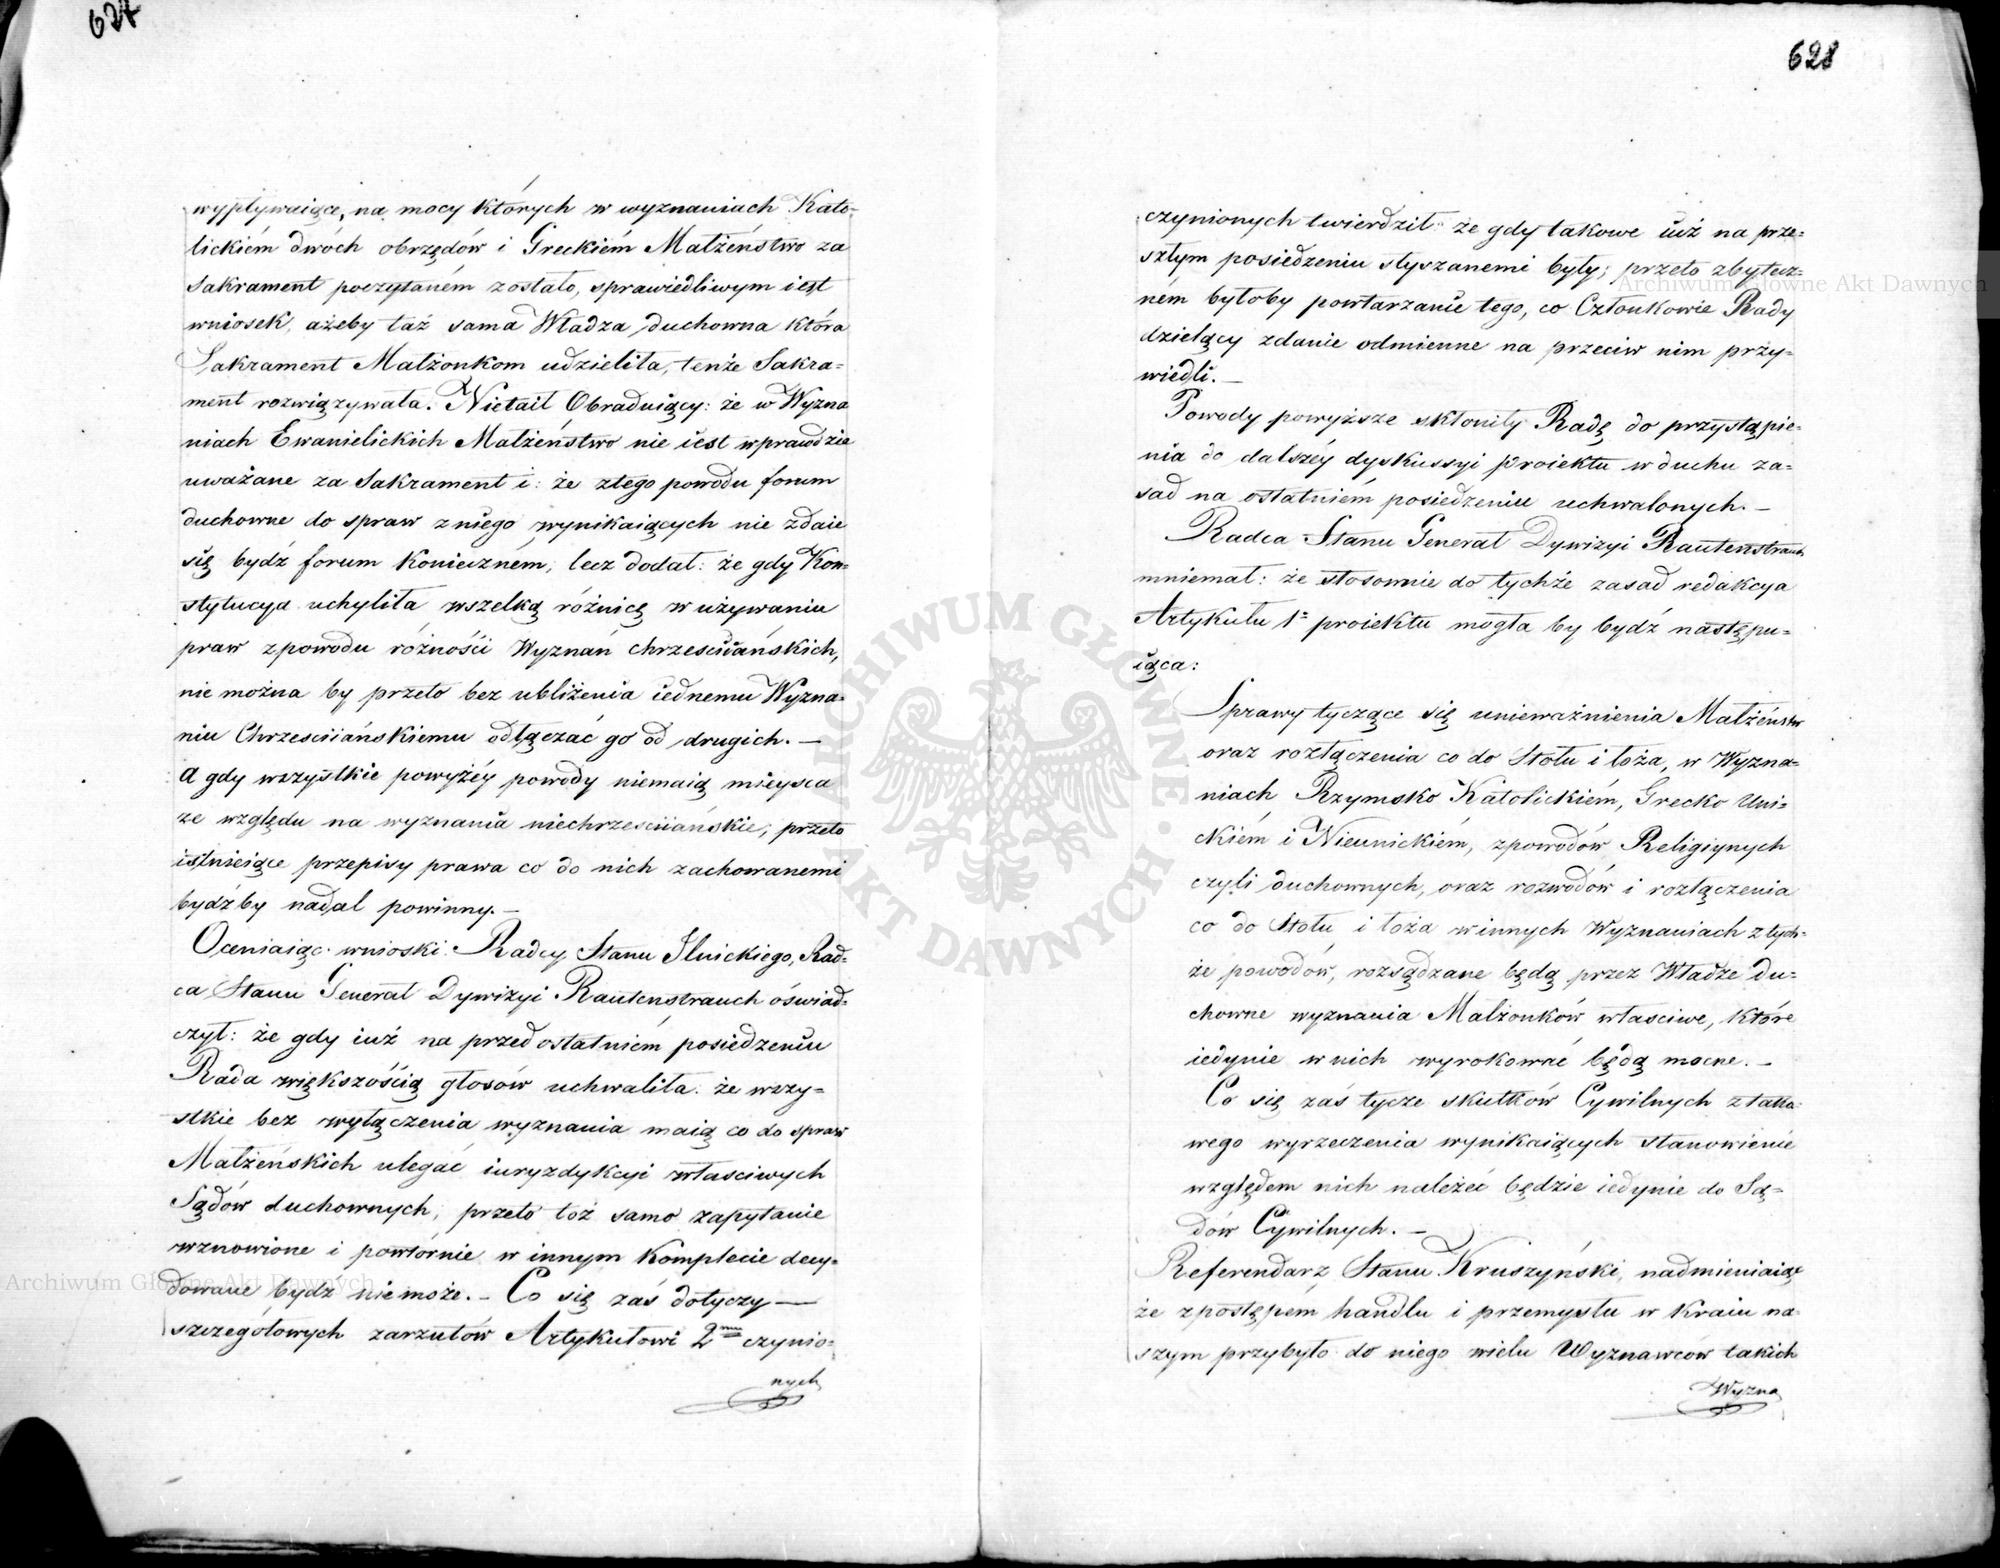 627
wypływaiące, na mocy których w wyznaniach Kato-
lickiém dwóch obrzędów i Greckiém Małżeństwo za
Sakrament poczytaném zostało, sprawiedliwym iest
wniosek, ażeby taż sama Władza duchowna która
Sakrament Małżonkom udzieliła, tenże Sakra-
ment rozwiązywała. Nietaił Obraduiący: że w Wyzna
niach Ewanielickich Małżeństwo nie iest wprawdzie
uważane za Sakrament i: że ztego powodu forum
duchowne do spraw zniego wynikaiących nie zdaie
się bydź forum Konieczném, lecz dodał: że gdy Kon-
stytucya uchyliła wszelką różnicę w używaniu
praw zpowodu różności Wyznań chrześciiańskich,
nie można by przeto bez ubliżenia iednemu Wyzna-
niu Chrześciiańskiemu odłączać go od drugich. —
A gdy wszystkie powyżéy powody niemaią mieysca
ze względu na wyznania niechrześciiańskie; przeto
istnieiące przepisy prawa co do nich zachowanemi
bydźby nadal powinny. —
Oceniaiąc wnioski Radcy Stanu Ilnickiego, Rad-
ca Stanu Generał Dywizyi Rautenstrauch oświad-
czył: że gdy iuż na przedostatniém posiedzeniu
Rada większością głosów uchwaliła: że wszy-
stkie bez wyłączenia wyznania maią co do spraw
Małżeńskich ulegać iuryzdykcyi właściwych
Sądów duchownych, przeto toż samo zapytanie
wznowione i powtórnie w innym Komplecie decy-
dowane bydź niemoże. — Co się zaś dotyczy —
szczegółowych zarzutów Artykułowi 2mu czynio-
nych
628
czynionych twierdził: że gdy takowe iuż na prze-
szłym posiedzeniu słyszanemi były; przeto zbytecz-
ném byłoby powtarzanie tego, co Członkowie Rady
dzielący zdanie odmienne na przeciw nim przy-
wiedli. —
Powody powyższe skłoniły Radę do przystąpie-
nia do dalszéy dyskussyi proiektu w duchu za-
sad na ostatniém posiedzeniu uchwalonych. —
Radca Stanu Generał Dywizyi Rautenstrauch
mniemał: że stosownie do tychże zasad redakcya
Artykułu 1o proiektu mogła by bydź następu-
iąca:
Sprawy tyczące się unieważnienia Małżeństw
oraz rozłączenia co do Stołu i łoża, w Wyzna-
niach Rzymsko Katolickiém, Grecko Uni-
ckiém i Nieunickiém, zpowodów Religiynych
czyli duchownych, oraz rozwodów i rozłączenia
co do Stołu i łoża w innych Wyznaniach z tych-
że powodów, rozsądzane będą przez Władze du-
chowne wyznania Małżonków właściwe, które
iedynie w nich wyrokować będą mocne. —
Co się zaś tycze skutków Cywilnych z tako-
wego wyrzeczenia wynikaiących stanowienie
względem nich należeć będzie iedynie do Są-
dów Cywilnych. —
Referendarz Stanu Kruszyński, nadmieniaiąc
że zpostępem handlu i przemysłu w Kraiu na-
szym przybyło do niego wielu Wyznawców takich
Wyzna
Archiwum Główne Akt Dawnych
ARCHIWUM GŁÓWNE AKT DAWNYCH
Archiwum Główne Akt Dawnych